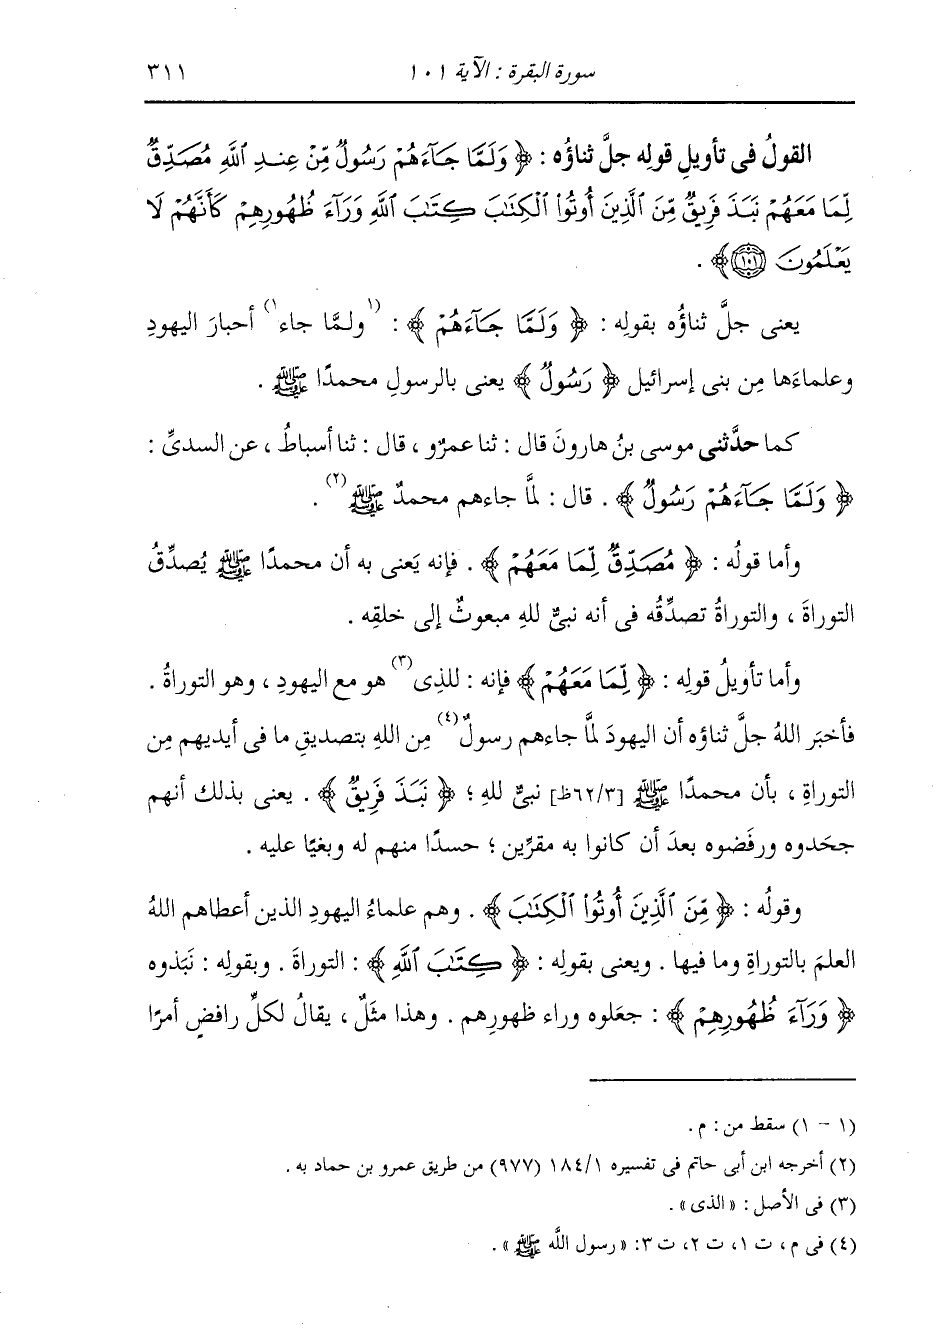 سورة البقرة : الآية ١٠١ ٣١١
القولُ فى تأويلِ قولِه جلَّ ثناؤُه : ﴿ وَلَمَّا جَآءَهُمْ رَسُولٌ مِّنْ عِندِ ٱللَّهِ مُصَدِّقٌ
لِّمَا مَعَهُمْ نَبَذَ فَرِيقٌ مِّنَ ٱلَّذِينَ أُوتُوا۟ ٱلْكِتَٰبَ كِتَٰبَ ٱللَّهِ وَرَآءَ ظُهُورِهِمْ كَأَنَّهُمْ لَا
يَعْلَمُونَ ١٠١ ﴾ .
يعنى جلَّ ثناؤُه بقولِه : ﴿ وَلَمَّا جَآءَهُمْ ﴾ : (١ ولـمَّا جاء ١) أحبارَ اليهودِ
وعلماءَها مِن بنى إسرائيل ﴿ رَسُولٌ ﴾ يعنى بالرسولِ محمدًا ﷺ .
كما حدَّثنى موسى بنُ هارونَ قال : ثنا عمرٌو ، قال : ثنا أسباطُ ، عن السدىِّ :
﴿ وَلَمَّا جَآءَهُمْ رَسُولٌ ﴾ . قال : لمَّا جاءهم محمدٌ ﷺ (٢) .
وأما قولُه : ﴿ مُصَدِّقٌ لِّمَا مَعَهُمْ ﴾ . فإنه يَعنى به أن محمدًا ﷺ يُصدِّقُ
التوراةَ ، والتوراةُ تصدِّقُه فى أنه نبىٌّ للهِ مبعوثٌ إلى خلقِه .
وأما تأويلُ قولِه : ﴿ لِّمَا مَعَهُمْ ﴾ فإنه : للذِى (٣) هو مع اليهودِ ، وهو التوراةُ .
فأخبَر اللهُ جلَّ ثناؤه أن اليهودَ لمَّا جاءهم رسولٌ (٤) مِن اللهِ بتصديقِ ما فى أيديهم مِن
التوراةِ ، بأن محمدًا ﷺ [٦٢/٣ظ] نبىٌّ للهِ ؛ ﴿ نَبَذَ فَرِيقٌ ﴾ . يعنى بذلك أنهم
جحَدوه ورفَضوه بعدَ أن كانوا به مقرِّين ؛ حسدًا منهم له وبغيًا عليه .
وقولُه : ﴿ مِّنَ ٱلَّذِينَ أُوتُوا۟ ٱلْكِتَٰبَ ﴾ . وهم علماءُ اليهودِ الذين أعطاهم اللهُ
العلمَ بالتوراةِ وما فيها . ويعنى بقولِه : ﴿ كِتَٰبَ ٱللَّهِ ﴾ : التوراةَ . وبقولِه : نَبَذوه
﴿ وَرَآءَ ظُهُورِهِمْ ﴾ : جعَلوه وراء ظهورِهم . وهذا مثَلٌ ، يقالُ لكلِّ رافضٍ أمرًا
(١ - ١) سقط من : م .
(٢) أخرجه ابن أبى حاتم فى تفسيره ١٨٤/١ (٩٧٧) من طريق عمرو بن حماد به .
(٣) فى الأصل : « الذى » .
(٤) فى م ، ت ١، ت ٢، ت ٣: « رسول الله ﷺ » .